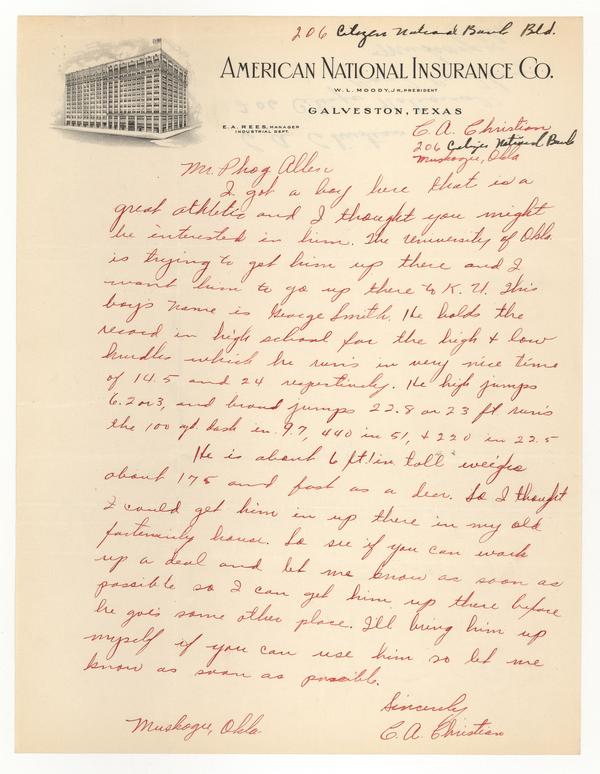 206 Citizen National Bank Bld.
AMERICAN NATIONAL INSURANCE CO.
W. L. MOODY, JR, PRESIDENT
GALVESTON, TEXAS
E. A. REES, MANAGER
INDUSTRIAL DEPT.
C. A. Christian
206 Citizen National Bank
Muskogee, Okla
Mr. Phog Allen
I got a boy here that is a
great athletic and I thought you might
be interested in him. The University of Okla.
is trying to get him up there and I
want him to go up there to K. U. This
boys name is George Smith. He holds the
record in high school for the high & low
hurdles which he runs in very nice time
of 14.5 and 24 respectively. He high jumps
6.2 or 3, and broad jumps 22.8 or 23 ft runs
the 100 yd. dash in 9.7, 440 in 51, & 220 in 22.5
He is about 6 ft. 1 in tall weighs
about 175 and fast as a deer. So I thought
I could get him in up there in my old
fraternity house. So see if you can work
up a deal and let me know as soon as
possible so I can get him up there before
he goes some other place. I'll bring him up
myself if you can use him so let me
know as soon as possible.
Sincerely
Muskogee, Okla. C. A. Christian